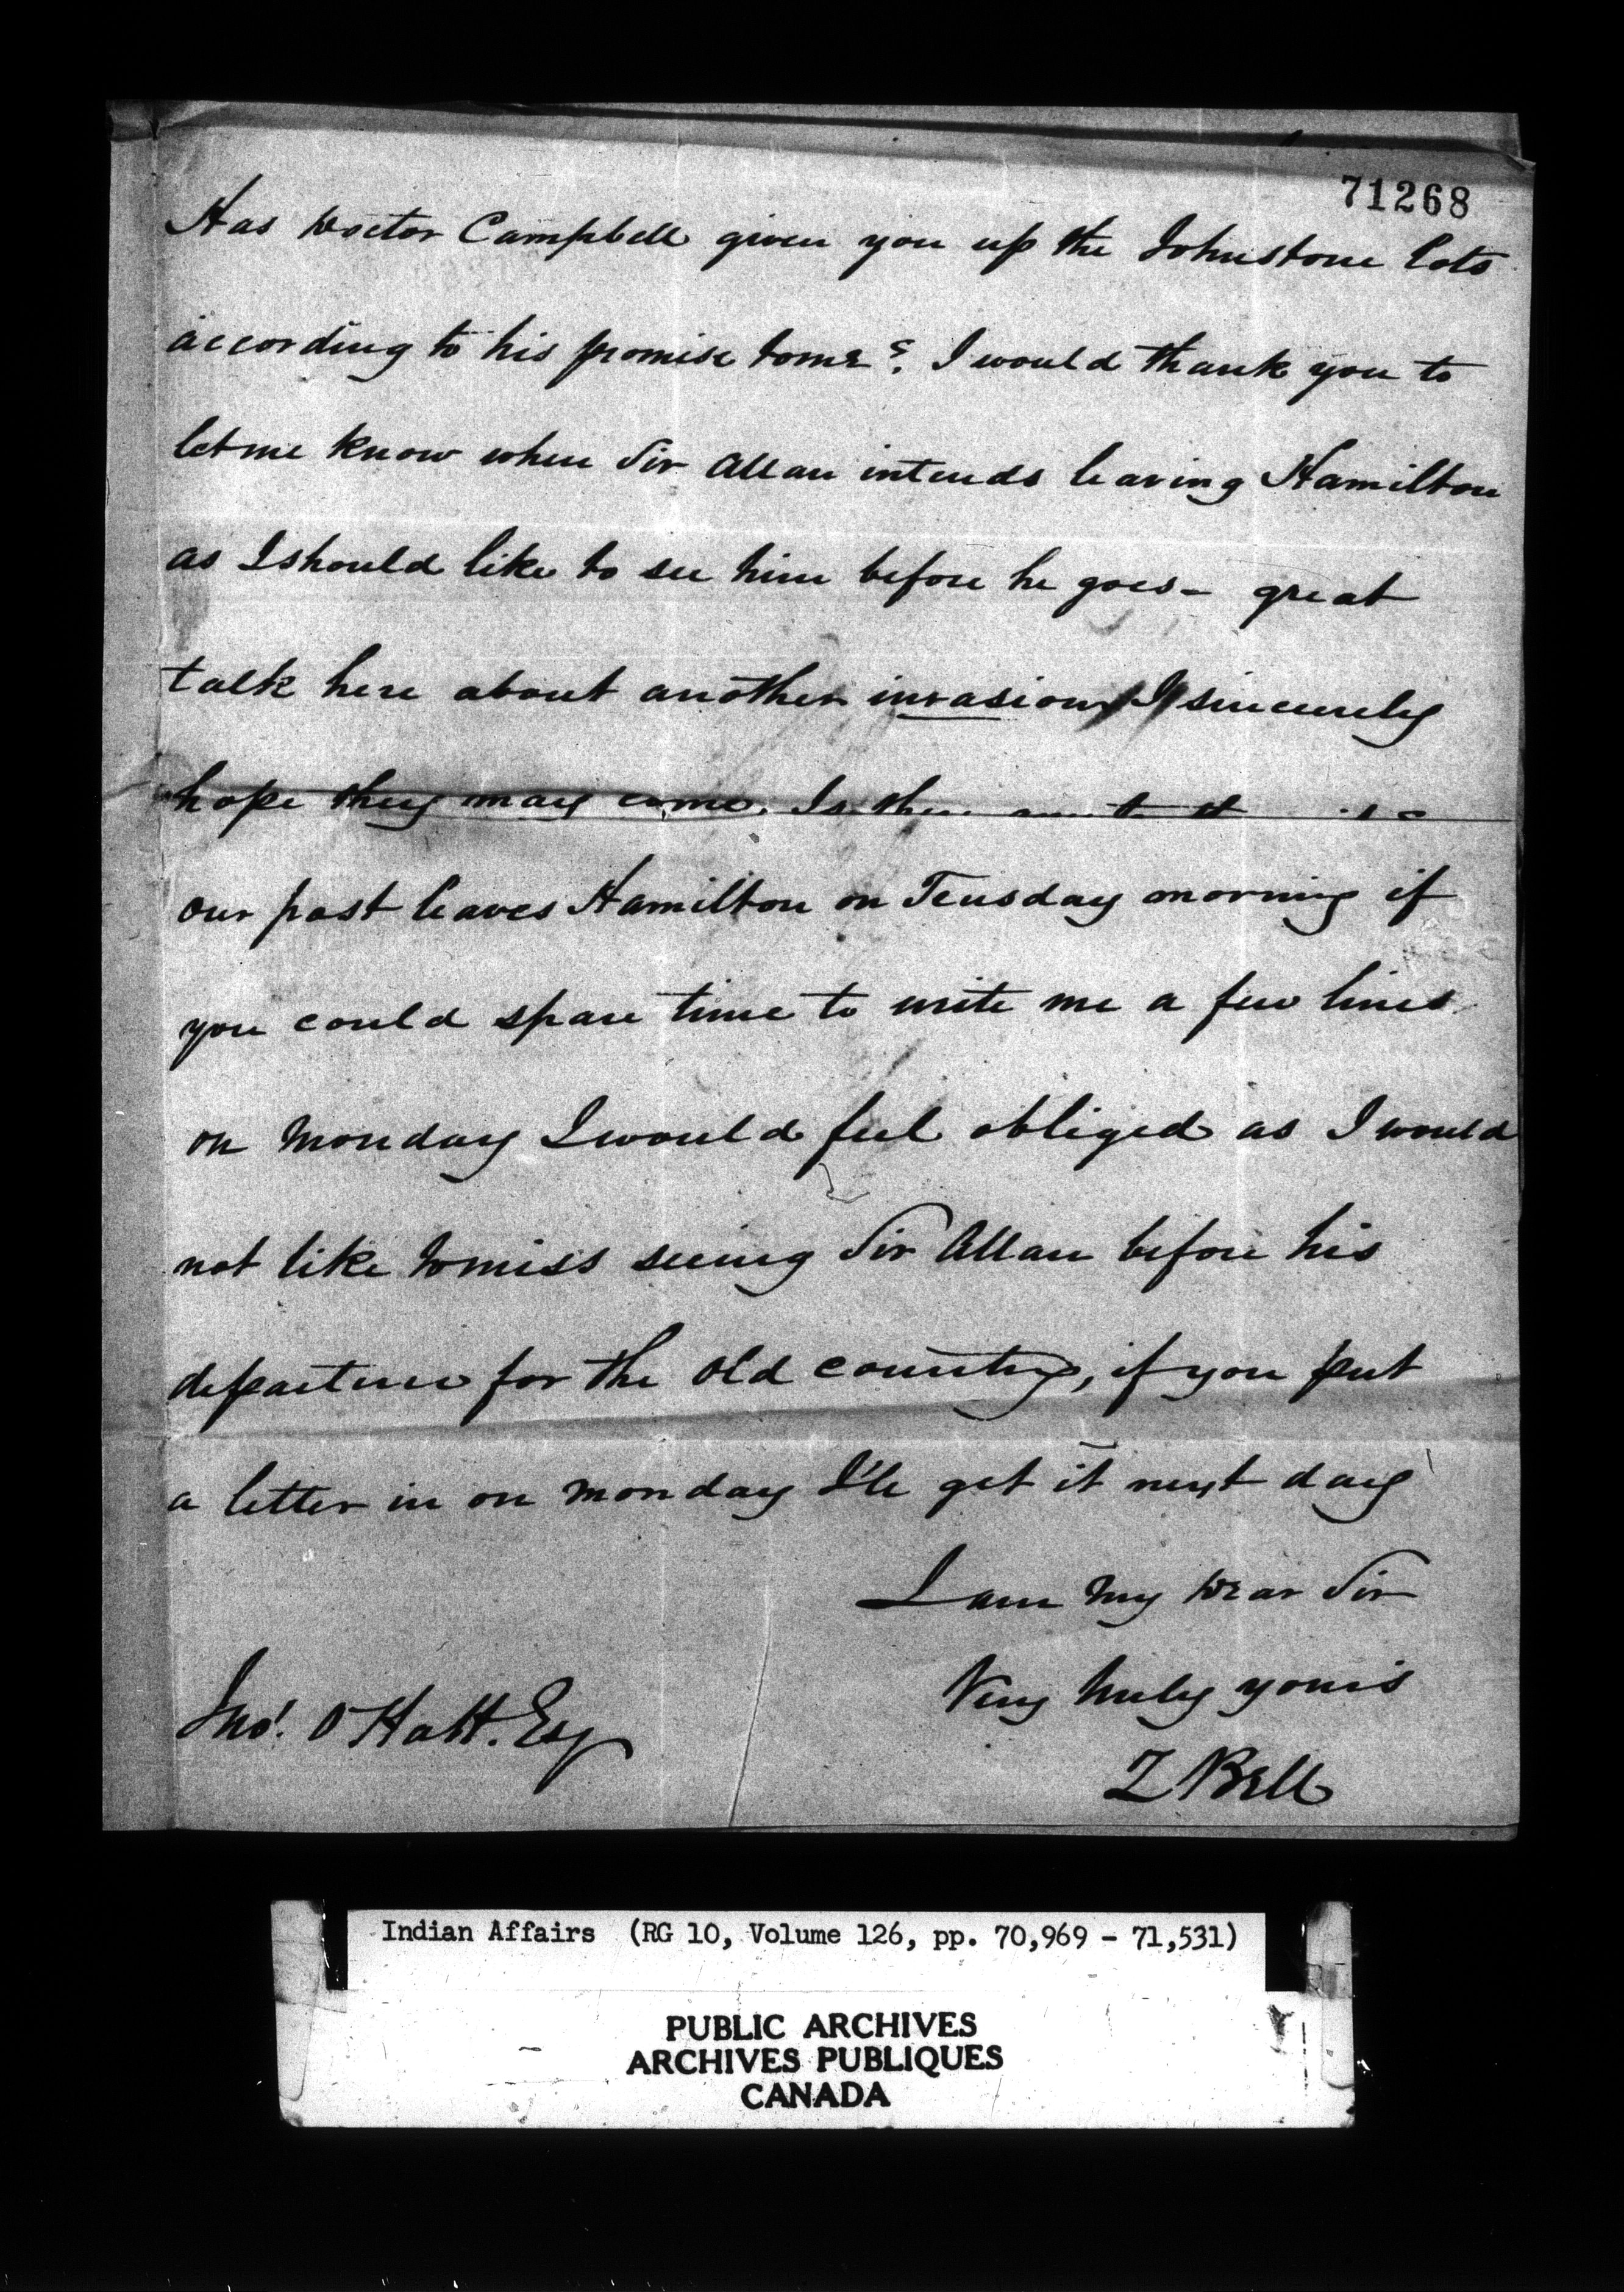 71268
Has Doctor Campbell given you up the Johnstone Lots
according to his promise to me? I would thank you to
let me know when Sir Allan intends leaving Hamilton
as I should like to see him before he goes - great
talk here about another invasion I sincerely
hope they may come. Is there
our post leaves Hamilton on Teusday morning if
you could spare time to write me a few lines
on Monday I would feel obliged as I would
not like to miss seeing Sir Allan before his
departure for the Old country, if you put
a letter in on Monday I'le get it next day
I am My Dear Sir
Very truly yours
Jno. O Hatt. Esq
Z Bell
Indian Affairs (RG 10, Volume 126, pp. 70,969 - 71,531)
PUBLIC ARCHIVES
ARCHIVES PUBLIQUES
CANADA